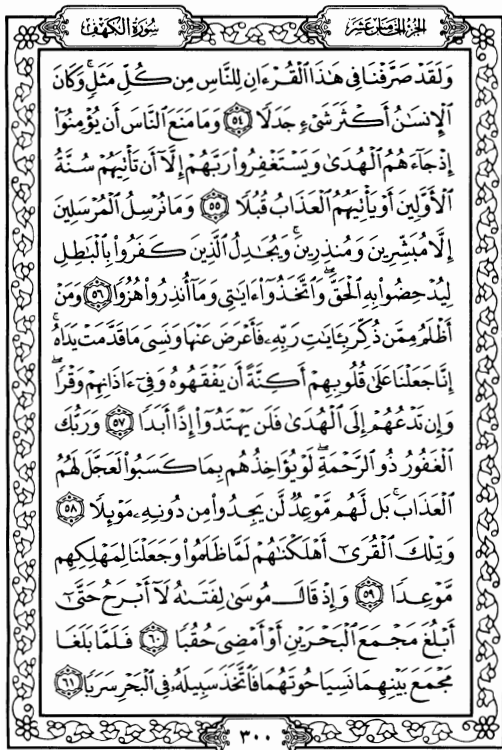 الجزء الخامس عشر
سورة الكهف
وَلَقَدْ صَرَّفْنَا فِي هَٰذَا الْقُرْءَانِ لِلنَّاسِ مِن كُلِّ مَثَلٍ ۚ وَكَانَ
الْإِنسَٰنُ أَكْثَرَ شَىْءٍ جَدَلًا ٥٤ وَمَا مَنَعَ النَّاسَ أَن يُؤْمِنُوٓا۟
إِذْ جَآءَهُمُ الْهُدَىٰ وَيَسْتَغْفِرُوا۟ رَبَّهُمْ إِلَّآ أَن تَأْتِيَهُمْ سُنَّةُ
الْأَوَّلِينَ أَوْ يَأْتِيَهُمُ الْعَذَابُ قُبُلًا ٥٥ وَمَا نُرْسِلُ الْمُرْسَلِينَ
إِلَّا مُبَشِّرِينَ وَمُنذِرِينَ ۚ وَيُجَٰدِلُ الَّذِينَ كَفَرُوا۟ بِالْبَٰطِلِ
لِيُدْحِضُوا۟ بِهِ الْحَقَّ ۖ وَاتَّخَذُوٓا۟ ءَايَٰتِى وَمَآ أُنذِرُوا۟ هُزُوًا ٥٦ وَمَنْ
أَظْلَمُ مِمَّن ذُكِّرَ بِـَٔايَٰتِ رَبِّهِۦ فَأَعْرَضَ عَنْهَا وَنَسِىَ مَا قَدَّمَتْ يَدَاهُ ۚ
إِنَّا جَعَلْنَا عَلَىٰ قُلُوبِهِمْ أَكِنَّةً أَن يَفْقَهُوهُ وَفِىٓ ءَاذَانِهِمْ وَقْرًا ۖ
وَإِن تَدْعُهُمْ إِلَى الْهُدَىٰ فَلَن يَهْتَدُوٓا۟ إِذًا أَبَدًا ٥٧ وَرَبُّكَ
الْغَفُورُ ذُو الرَّحْمَةِ ۖ لَوْ يُؤَاخِذُهُم بِمَا كَسَبُوا۟ لَعَجَّلَ لَهُمُ
الْعَذَابَ ۚ بَل لَّهُم مَّوْعِدٌ لَّن يَجِدُوا۟ مِن دُونِهِۦ مَوْئِلًا ٥٨
وَتِلْكَ الْقُرَىٰٓ أَهْلَكْنَٰهُمْ لَمَّا ظَلَمُوا۟ وَجَعَلْنَا لِمَهْلِكِهِم
مَّوْعِدًا ٥٩ وَإِذْ قَالَ مُوسَىٰ لِفَتَىٰهُ لَآ أَبْرَحُ حَتَّىٰٓ
أَبْلُغَ مَجْمَعَ الْبَحْرَيْنِ أَوْ أَمْضِىَ حُقُبًا ٦٠ فَلَمَّا بَلَغَا
مَجْمَعَ بَيْنِهِمَا نَسِيَا حُوتَهُمَا فَاتَّخَذَ سَبِيلَهُۥ فِى الْبَحْرِ سَرَبًا ٦١
٣٠٠